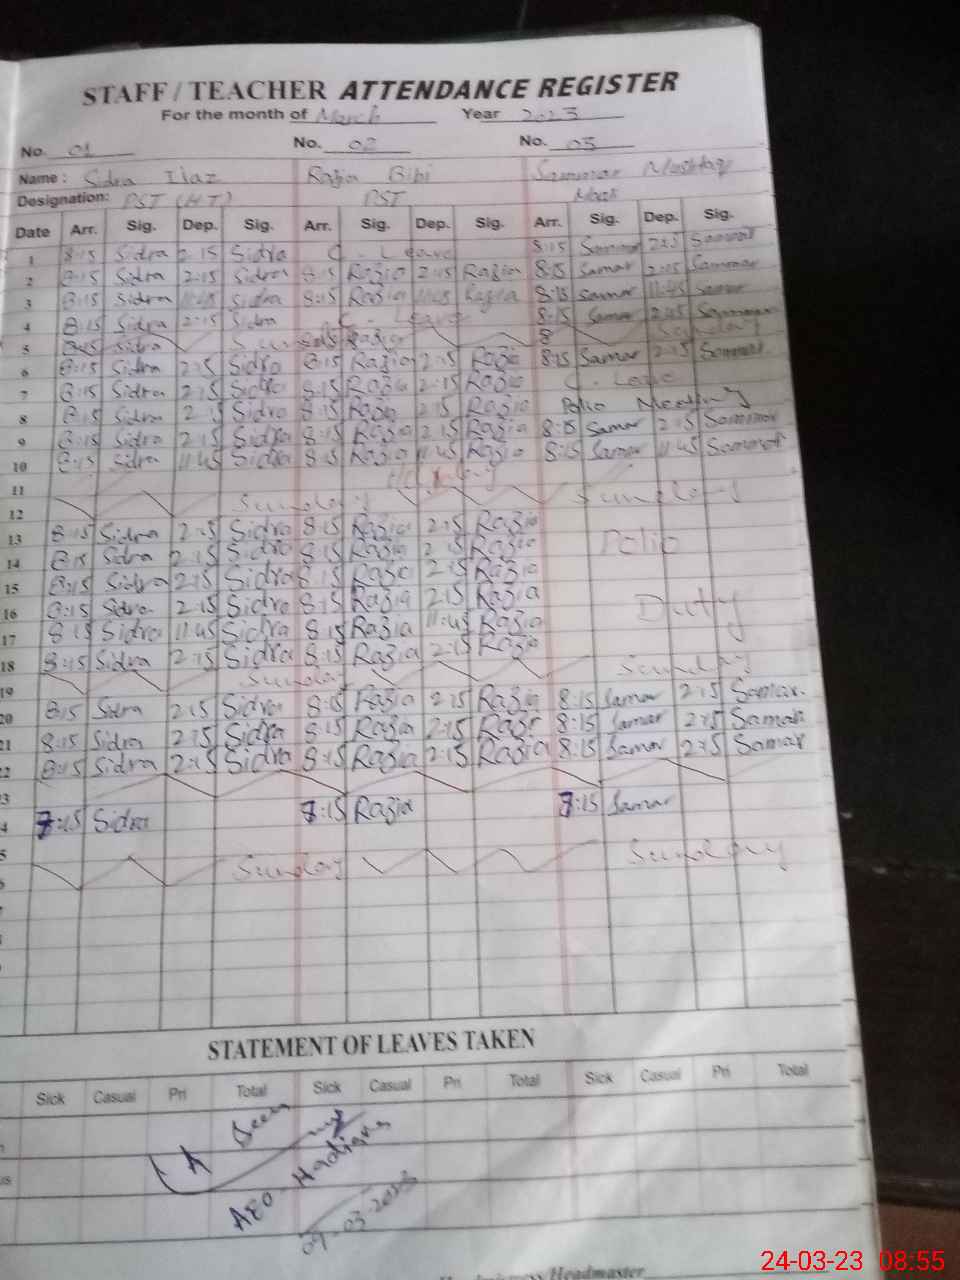 STAFF / TEACHER ATTENDANCE REGISTER
For the month of March Year 2023
No. 01 No. 02 No. 03
Name: Sidra Ilaz Razia Bibi Sammar Mushtaq
Designation: PST (H T) PST
Date Arr. Sig. Dep. Sig. Arr. Sig. Dep. Sig. Arr. Sig. Dep. Sig.
1 8:15 Sidra 2:15 Sidra C. Leave 8:15 Sammar 2:15 Sammar
2 8:15 Sidra 2:15 Sidra 8:15 Razia 2:15 Razia 8:15 Samar 2:15 Sammar
3 8:15 Sidra 11:45 Sidra 8:15 Razia 11:45 Razia 8:15 Samar 11:45 Samar
4 8:15 Sidra 2:15 Sidra C. Leave 8:15 Samar 2:15 Sammar
5 8:15 Sidra Sunday Razia 8 Sunday
6 8:15 Sidra 2:15 Sidra 8:15 Razia 2:15 Razia 8:15 Samar 2:15 Sammar
7 8:15 Sidra 2:15 Sidra 8:15 Razia 2:15 Razia C. Leave
8 8:15 Sidra 2:15 Sidra 8:15 Razia 2:15 Razia Polio Meeting
9 8:15 Sidra 2:15 Sidra 8:15 Razia 2:15 Razia 8:15 Samar 2:15 Sammar
10 8:15 Sidra 11:45 Sidra 8:15 Razia 11:45 Razia 8:15 Samar 11:45 Sammar
11
12 Sunday Sunday
13 8:15 Sidra 2:15 Sidra 8:15 Razia 2:15 Razia
14 8:15 Sidra 2:15 Sidra 8:15 Razia 2:15 Razia Polio
15 8:15 Sidra 2:15 Sidra 8:15 Razia 2:15 Razia
16 8:15 Sidra 2:15 Sidra 8:15 Razia 2:15 Razia Duty
17 8:15 Sidra 11:45 Sidra 8:15 Razia 11:45 Razia
18 8:15 Sidra 2:15 Sidra 8:15 Razia 2:15 Razia
19 Sunday Sunday
20 8:15 Sidra 2:15 Sidra 8:15 Razia 2:15 Razia 8:15 Samar 2:15 Samar
21 8:15 Sidra 2:15 Sidra 8:15 Razia 2:15 Razia 8:15 Samar 2:15 Samar
22 8:15 Sidra 2:15 Sidra 8:15 Razia 2:15 Razia 8:15 Samar 2:15 Samar
3
4 7:15 Sidra 7:15 Razia 7:15 Samar
5
6 Sunday Sunday
STATEMENT OF LEAVES TAKEN
Sick Casual Pri Total Sick Casual Pri Total Sick Casual Pri Total
Seen
AEO Hadiara
09-03-2023
Headmaster
24-03-23 08:55